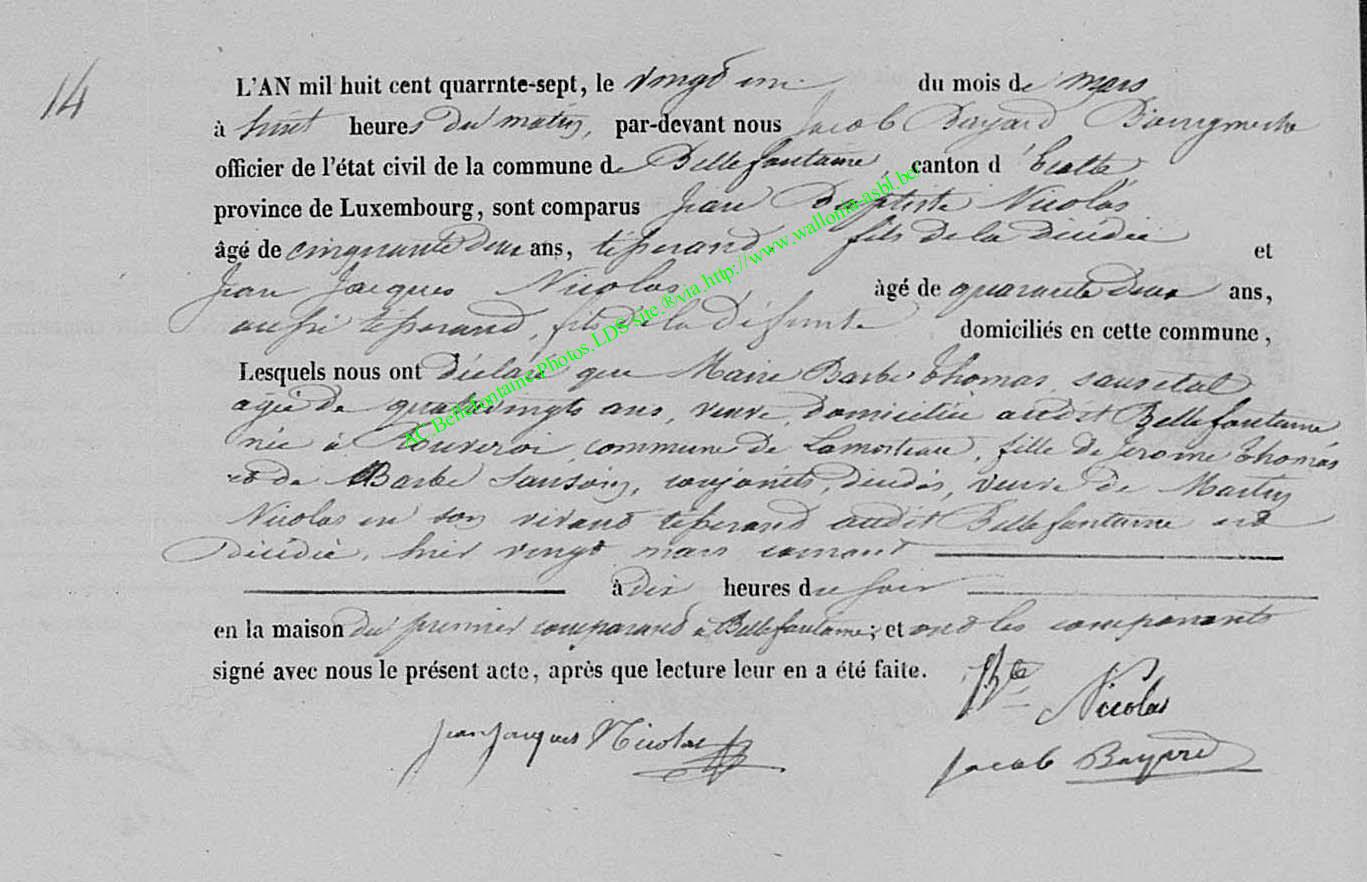 14
L'AN mil huit cent quarrnte-sept, le vingt un du mois de mars
à huit heures du matin, par-devant nous Jacob Bayard Bourgmestre
officier de l'état civil de la commune de Bellefontaine, canton d'Etalle
province de Luxembourg, sont comparus Jean Baptiste Nicolas
âgé de cinquante deux ans, tisserand, fils de la décédée et
Jean Jacques Nicolas, âgé de quarante deux ans,
aussi tisserand, fils de la défunte domiciliés en cette commune,
Lesquels nous ont déclaré que Marie Barbe Thomas, sans état
agée de quatre vingts ans, veuve, domiciliée audit Bellefontaine
née à Rouvroi, commune de Lamorteau, fille de Jerome Thomas
et de Barbe Sansoin, conjoints, décédés, veuve de Martin
Nicolas en son vivant tisserand audit Bellefontaine est
décédée, hier vingt mars courant
à dix heures du soir
en la maison du premier comparant à Bellefontaine; et ont les comparants
signé avec nous le présent acte, après que lecture leur en a été faite.
Bte Nicolas
Jean Jacques Nicolas
Jacob Bayard
AC Bellefontaine.Photos.LDS-site.®via.http://www.wallonia-asbl.be/